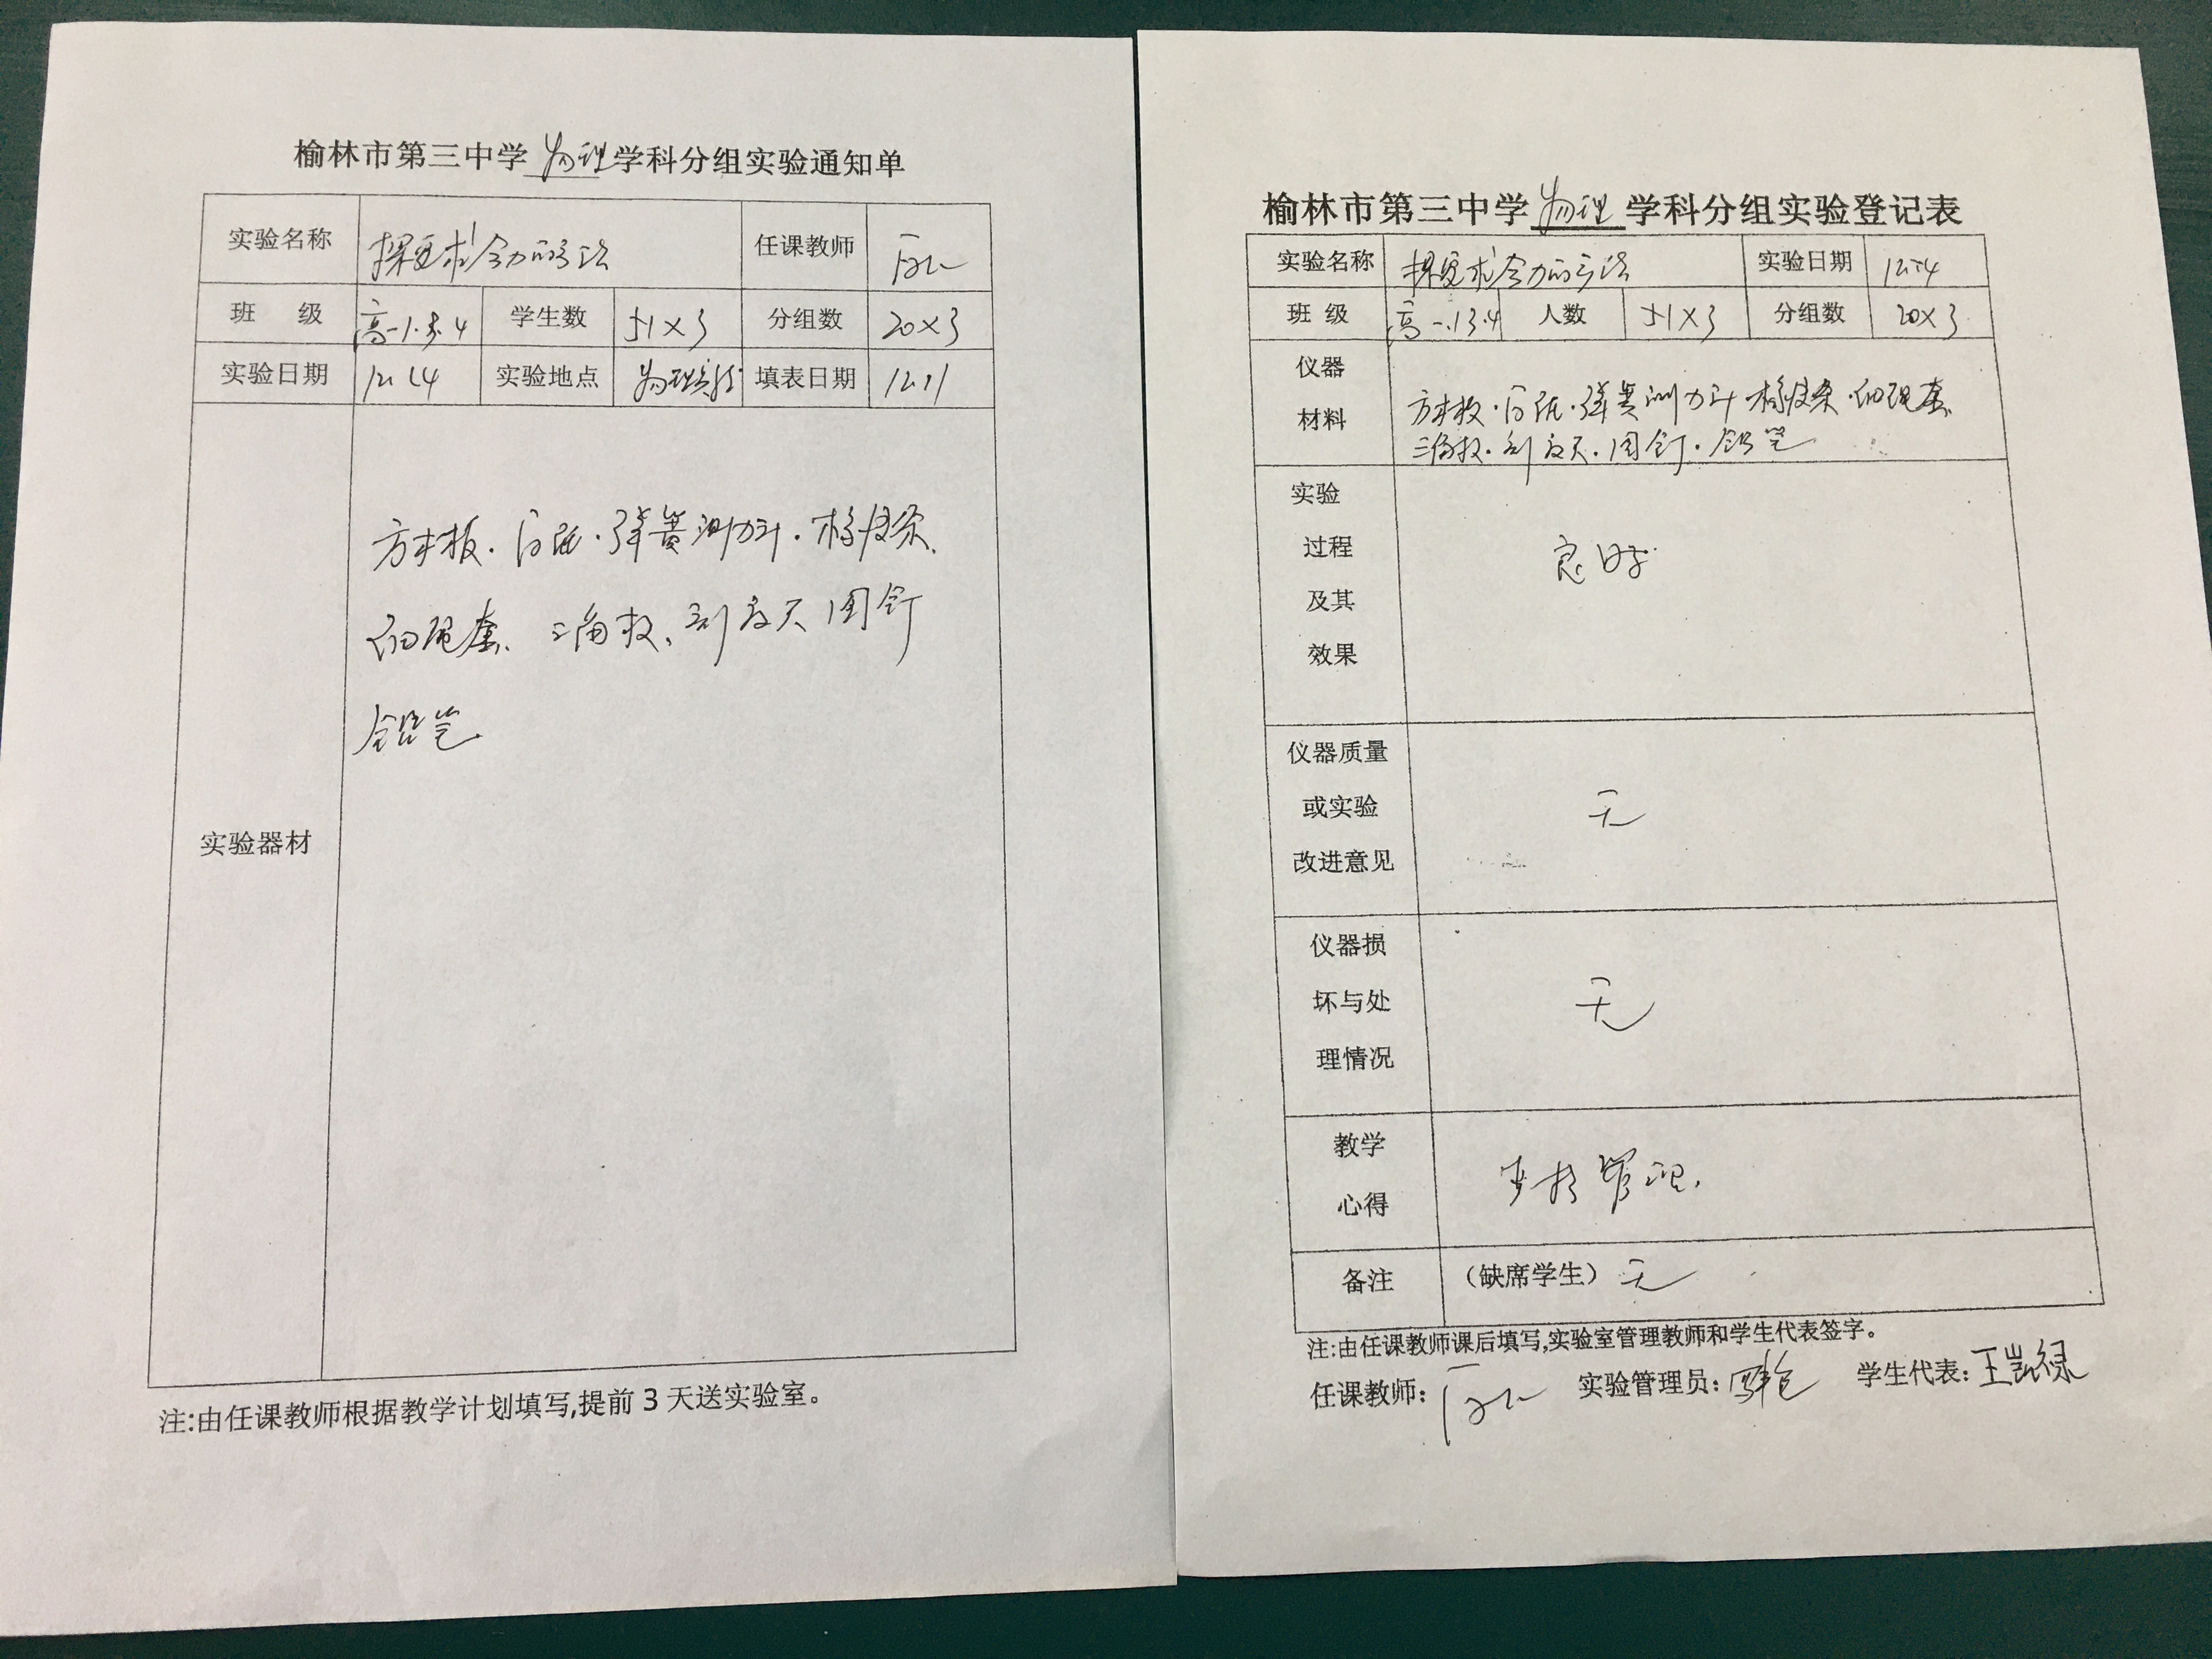 榆林市第三中学物理学科分组实验通知单
实验名称 探究求合力的方法 任课教师
班 级 高一1.3.4 学生数 51×3 分组数 20×3
实验日期 12.14 实验地点 物理实验 填表日期 12.11
实验器材
方木板.白纸.弹簧测力计.橡皮条、
细绳套、三角板、刻度尺 图钉
铅笔
注:由任课教师根据教学计划填写,提前3天送实验室。
榆林市第三中学物理学科分组实验登记表
实验名称 探究求合力的方法 实验日期 12.14
班 级 高一.1.3.4 人数 51×3 分组数 20×3
仪器
材料
方木板.白纸.弹簧测力计 橡皮条.细绳套
三角板.刻度尺.图钉.铅笔
实验
过程
及其
效果
良好
仪器质量
或实验
改进意见
无
仪器损
坏与处
理情况
无
教学
心得
严格管理.
备注 (缺席学生) 无
注:由任课教师课后填写,实验室管理教师和学生代表签字。
任课教师: 实验管理员: 学生代表: